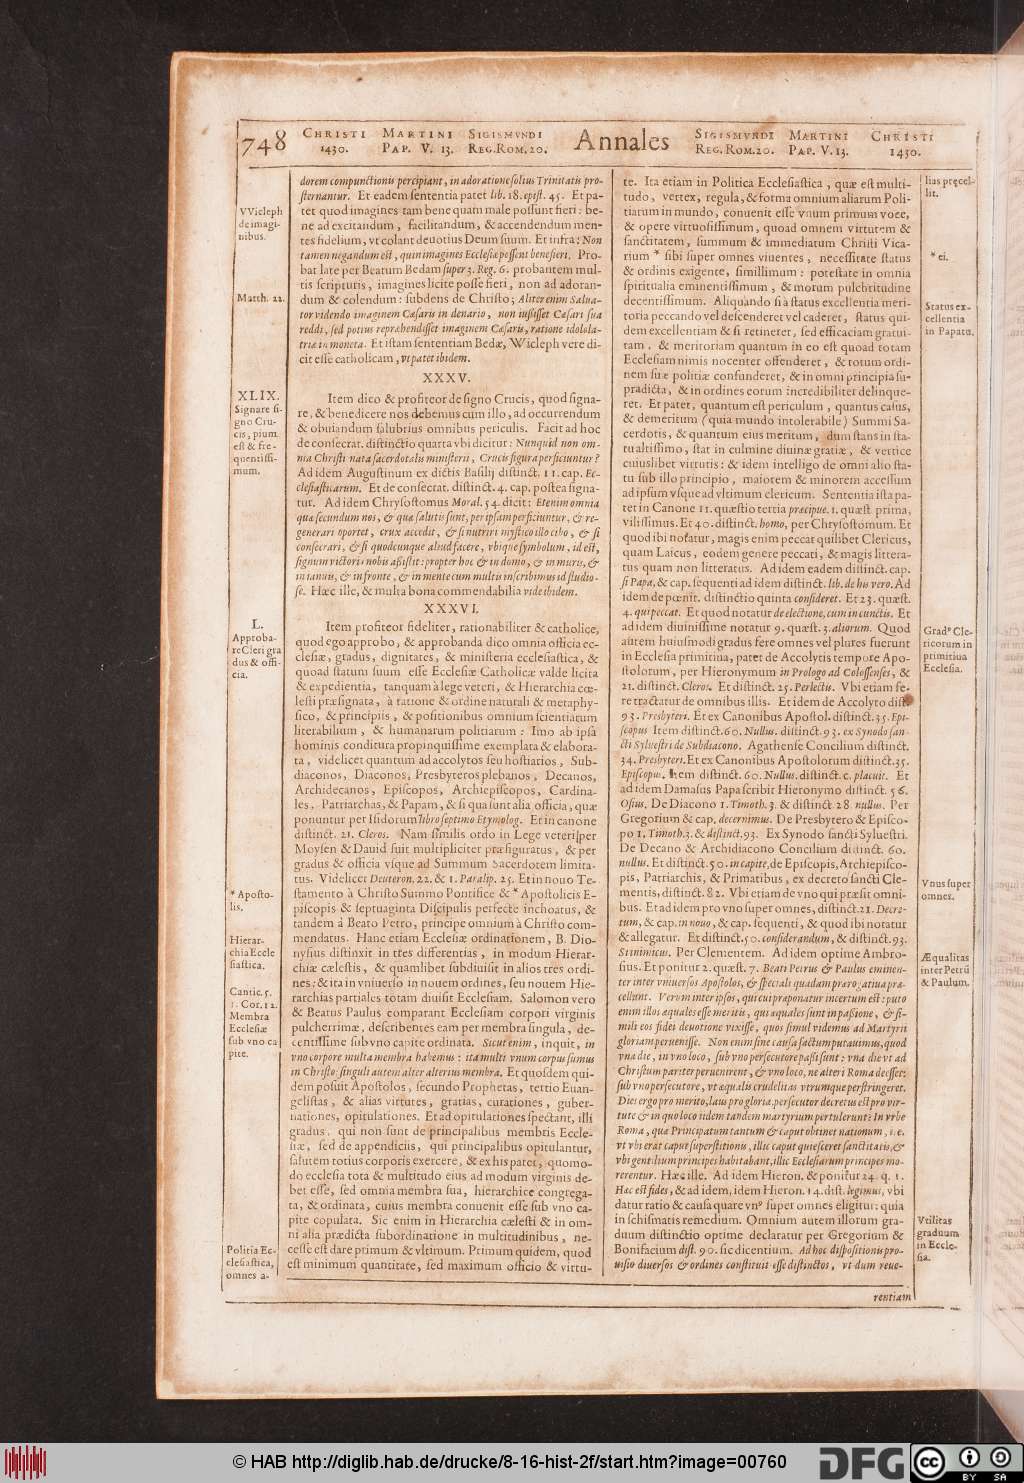 748 CHRISTI 1430. MARTINI PAP. V. 13. SIGISMVNDI REG.ROM.20. Annales SIGISMVNDI REG.ROM.20. MARTINI PAP.V.13. CHRISTI 1430.
dorem compunctionis percipiant, in adoratione solius Trinitatis pro-
sternantur. Et eadem sententia patet lib. 18. epist. 45. Et pa-
tet quod imagines tam bene quam male possunt fieri: be-
ne ad excitandum, facilitandum, & accendendum men-
tes fidelium, vt colant deuotius Deum suum. Et infra: Non
tamen negandum est, quin imagines Ecclesiæ possent benefieri. Pro-
bat late per Beatum Bedam super 3. Reg. 6. probantem mul-
tis scripturis, imagines licite posse fieri, non ad adoran-
dum & colendum: subdens de Christo; Aliter enim Salua-
tor videndo imaginem Cæsaris in denario, non iussisset Cæsari sua
reddi, sed potius reprehendisset imaginem Cæsaris, ratione idolola-
triæ in moneta. Et istam sententiam Bedæ, Wicleph vere di-
cit esse catholicam, vt patet ibidem.
VVicleph
de imagi-
nibus.
Matth. 22.
XXXV.
Item dico & profiteor de signo Crucis, quod signa-
re, & benedicere nos debemus cum illo, ad occurrendum
& obuiandum salubrius omnibus periculis. Facit ad hoc
de consecrat. distinctio quarta vbi dicitur: Nunquid non om-
nia Christi nata sacerdotalis ministerii, Crucis figura perficiuntur?
Ad idem Augustinum ex dictis Basilij distinct. 11. cap. Ec-
clesiasticarum. Et de consecrat. distinct. 4. cap. postea signa-
tur. Ad idem Chrysostomus Moral. 54. dicit: Etenim omnia
quæ secundum nos, & quæ salutis sunt, per ipsam perficiuntur, & re-
generari oportet, crux accedit, & si nutriri mystico illo cibo, & si
consecrari, & si quodcunque aliud facere, vbique symbolum, id est,
signum victoriæ nobis assistit: propter hoc & in domo, & in muris, &
in ianuis, & in fronte, & in mente cum multis inscribimus id studio-
se. Hæc ille, & multa bona commendabilia vide ibidem.
XLIX.
Signare si-
gno Cru-
cis, pium
est & fre-
quentissi-
mum.
XXXVI.
Item profiteor fideliter, rationabiliter & catholice,
quod ego approbo, & approbanda dico omnia officia ec-
clesiæ, gradus, dignitates, & ministeria ecclesiastica, &
quoad statum suum esse Ecclesiæ Catholicæ valde licita
& expedientia, tanquam à lege veteri, & Hierarchia cœ-
lesti præsignata, à ratione & ordine naturali & metaphy-
sico, & principiis, & positionibus omnium scientiarum
literabilium, & humanarum politiarum: Imo ab ipsa
hominis conditura propinquissime exemplata & elabora-
ta, videlicet quantum ad accolytos seu hostiarios, Sub-
diaconos, Diaconos, Presbyteros plebanos, Decanos,
Archidecanos, Episcopos, Archiepiscopos, Cardina-
les, Patriarchas, & Papam, & si qua sunt alia officia, quæ
ponuntur per Isidorum libro septimo Etymolog. Et in canone
distinct. 21. Cleros. Nam similis ordo in Lege veteri per
Moysen & Dauid fuit multipliciter præfiguratus, & per
gradus & officia vsque ad Summum Sacerdotem limita-
tus. Videlicet Deuteron. 22. & 1. Paralip. 25. Et in nouo Te-
stamento à Christo Summo Pontifice & * Apostolicis E-
piscopis & septuaginta Discipulis perfecte inchoatus, &
tandem à Beato Petro, principe omnium à Christo com-
mendatus. Hanc etiam Ecclesiæ ordinationem, B. Dio-
nysius distinxit in tres differentias, in modum Hierar-
chiæ cælestis, & quamlibet subdiuisit in alios tres ordi-
nes: & ita in vniuerso in nouem ordines, seu nouem Hie-
rarchias partiales totam diuisit Ecclesiam. Salomon vero
& Beatus Paulus comparant Ecclesiam corpori virginis
pulcherrimæ, describentes eam per membra singula, de-
centissime sub vno capite ordinata. Sicut enim, inquit, in
vno corpore multa membra habemus: ita multi vnum corpus sumus
in Christo, singuli autem alter alterius membra. Et quosdem qui-
dem posuit Apostolos, secundo Prophetas, tertio Euan-
gelistas, & alias virtutes, gratias, curationes, guber-
nationes, opitulationes. Et ad opitulationes spectant, illi
gradus, qui non sunt de principalibus membris Eccle-
siæ, sed de appendiciis, qui principalibus opitulantur,
salutem totius corporis exercere, & ex his patet, quomo-
do ecclesia tota & multitudo eius ad modum virginis de-
bet esse, sed omnia membra sua, hierarchice congrega-
ta, & ordinata, cuius membra conuenit esse sub vno ca-
pite copulata. Sic enim in Hierarchia cælesti & in om-
ni alia prædicta subordinatione in multitudinibus, ne-
cesse est dare primum & vltimum. Primum quidem, quod
est minimum quantitate, sed maximum officio & virtu-
L.
Approba-
re Cleri gra
dus & offi-
cia.
* Aposto-
lis.
Hierar-
chia Eccle
siastica.
Cantic. 5.
1. Cor. 12.
Membra
Ecclesiæ
sub vno ca
pite.
Politia Ec-
clesiastica,
omnes a-
te. Ita etiam in Politica Ecclesiastica, quæ est multi-
tudo, vertex, regula, & forma omnium aliarum Poli-
tiarum in mundo, conuenit esse vnum primum voce,
& opere virtuosissimum, quoad omnem virtutem &
sanctitatem, summum & immediatum Christi Vica-
rium * sibi super omnes viuentes, necessitate status
& ordinis exigente, simillimum: potestate in omnia
spiritualia eminentissimum, & morum pulchritudine
decentissimum. Aliquando si à status excellentia meri-
toria peccando vel descenderet vel caderet, status qui-
dem excellentiam & si retineret, sed efficaciam gratui-
tam, & meritoriam quantum in eo est quoad totam
Ecclesiam nimis nocenter offenderet, & totum ordi-
nem suæ politiæ confunderet, & in omni principia su-
prædicta, & in ordines eorum incredibiliter delinque-
ret. Et patet, quantum est periculum, quantus casus,
& demeritum (quia mundo intolerabile) Summi Sa-
cerdotis, & quantum eius meritum, dum stans in sta-
tu altissimo, stat in culmine diuinæ gratiæ, & vertice
cuiuslibet virtutis: & idem intelligo de omni alio sta-
tu sub illo principio, maiorem & minorem accessum
ad ipsum vsque ad vltimum clericum. Sententia ista pa-
tet in Canone 11. quæstio tertia præcipue. 1. quæst. prima,
vilissimus. Et 40. distinct. homo, per Chrysostomum. Et
quod ibi notatur, magis enim peccat quilibet Clericus,
quam Laicus, eodem genere peccati, & magis littera-
tus quam non litteratus. Ad idem eadem distinct. cap.
si Papa, & cap. sequenti ad idem distinct. lib. de his vero. Ad
idem de pœnit. distinctio quinta consideret. Et 23. quæst.
4. qui peccat. Et quod notatur de electione, cum in cunctis. Et
ad idem diuinissime notatur 9. quæst. 3. aliorum. Quod
autem huiusmodi gradus fere omnes vel plures fuerunt
in Ecclesia primitiua, patet de Accolytis tempore Apo-
stolorum, per Hieronymum in Prologo ad Colossenses, &
21. distinct. Cleros. Et distinct. 25. Perlectis. Vbi etiam fe-
re tractatur de omnibus illis. Et idem de Accolyto dist.
93. Presbyteri. Et ex Canonibus Apostol. distinct. 35. Epi-
scopus Item distinct. 60. Nullus. distinct. 93. ex Synodo san-
cti Syluestri de Subdiacono. Agathense Concilium distinct.
34. Presbyteri. Et ex Canonibus Apostolorum distinct. 35.
Episcopus. Item distinct. 60. Nullus. distinct. c. placuit. Et
ad idem Damasus Papa scribit Hieronymo distinct. 56.
Osius. De Diacono 1. Timoth. 3. & distinct. 28. nullus. Per
Gregorium & cap. decernimus. De Presbytero & Episco-
po 1. Timoth. 3. & distinct. 93. Ex Synodo sancti Syluestri.
De Decano & Archidiacono Concilium distinct. 60.
nullus. Et distinct. 50. in capite, de Episcopis, Archiepisco-
pis, Patriarchis, & Primatibus, ex decreto sancti Cle-
mentis, distinct. 82. Vbi etiam de vno qui præsit omni-
bus. Et ad idem pro vno super omnes, distinct. 21. Decre-
tum, & cap. in nouo, & cap. sequenti, & quod ibi notatur
& allegatur. Et distinct. 50. considerandum, & distinct. 93.
Si inimicus. Per Clementem. Ad idem optime Ambro-
sius. Et ponitur 2. quæst. 7. Beati Petrus & Paulus eminen-
ter inter vniuersos Apostolos, & speciali quadam prærogatiua præ-
cellunt. Verum inter ipsos, qui cui præponatur incertum est: puto
enim illos æquales esse meritis, qui æquales sunt in passione, & si-
mili eos fidei deuotione vixisse, quos simul videmus ad Martyrii
gloriam peruenisse. Non enim sine causa factum putauimus, quod
vna die, in vno loco, sub vno persecutore passi sunt: vna die vt ad
Christum pariter peruenirent, & vno loco, ne alteri Roma deesset:
sub vno persecutore, vt æqualis crudelitas vtrumque perstringeret.
Dies ergo pro merito, laus pro gloria, persecutor decretus est pro vir-
tute & in quo loco iidem tandem martyrium pertulerunt? In vrbe
Roma, quæ Principatum tantum & caput obtinet nationum, i.e.
vt vbi erat caput superstitionis, illic caput quiesceret sanctitatis, &
vbi gentilium principes habitabant, illic Ecclesiarum principes mo-
rerentur. Hæc ille. Ad idem Hieron. & ponitur 24. q. 1.
Hæc est fides, & ad idem, idem Hieron. 14. dist. legimus, vbi
datur ratio & causa quare vnꝰ super omnes eligitur: quia
in schismatis remedium. Omnium autem illorum gra-
duum distinctio optime declaratur per Gregorium &
Bonifacium dist. 90. sic dicentium. Ad hoc dispositionis pro-
uisio diuersos & ordines constituit esse distinctos, vt dum reue-
rentiam
lias præcel-
lit.
* ei.
Status ex-
cellentia
in Papatu.
Gradꝰ Cle-
ricorum in
primitiua
Ecclesia.
Vnus super
omnes.
Æqualitas
inter Petrū
& Paulum.
Vtilitas
graduum
in Eccle-
sia.
© HAB http://diglib.hab.de/drucke/8-16-hist-2f/start.htm?image=00760
DFG
cc BY SA